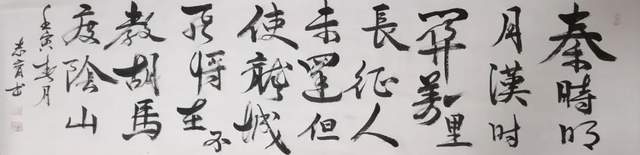 秦時明
月漢時
關萬里
長征人
未還但
使龍城
飛將在不
教胡馬
度陰山
壬寅春月
志育书